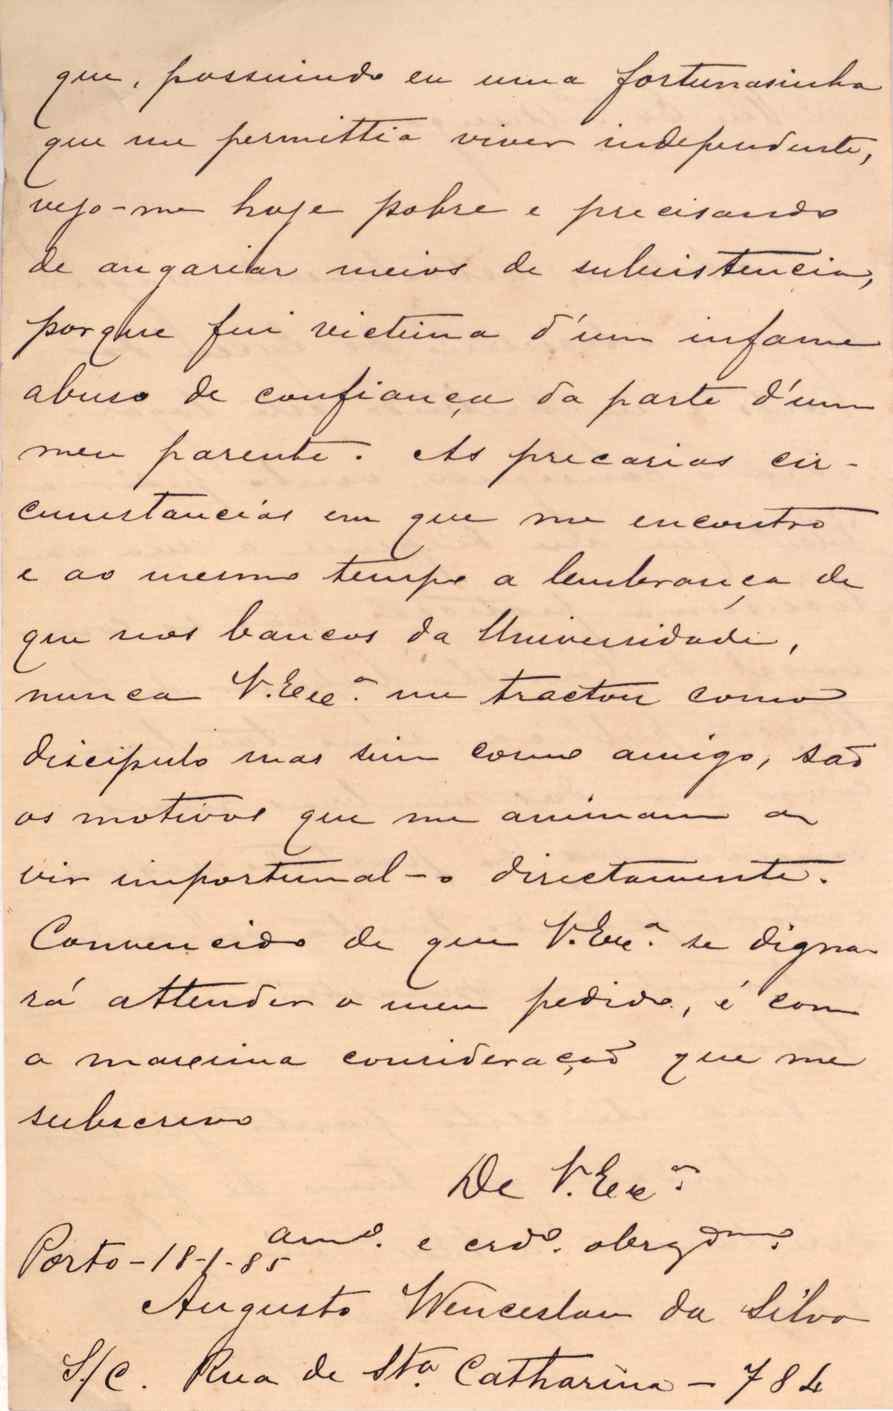 que, possuindo eu uma fortunasinha
que me permittia viver independente,
vejo-me hoje pobre e precisando
de angariar meios de subsistencia,
porque fui victima d'um infame
abuso de confiança da parte d'um
meu parente. As precarias cir-
cumstancias em que me encontro
e ao mesmo tempo a lembrança de
que nos bancos da Universidade,
nunca V. Exc.ª me tractou como
discipulo mas sim como amigo, são
os motivos que me animam a
vir importunal-o directamente.
Convencido de que V. Exc.ª se digna-
rá attender o meu pedido, é com
a maxima consideração que me
subscrevo
De V. Exc.ª
am.º e crd.º obrgdmo.
Porto - 18-1-85
Augusto Wenceslau da Silva
S/C. Rua de Sta. Catharina - 784